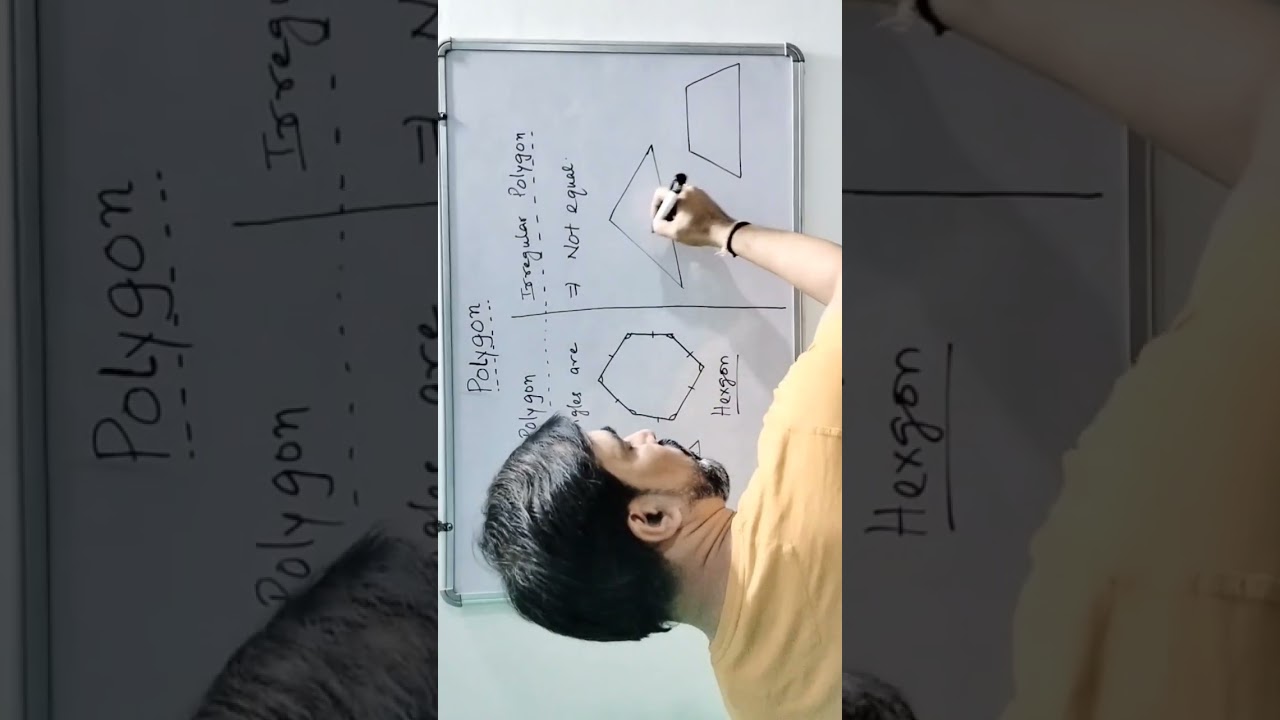 Polygon
Polygon
Irregular Polygon
gles are
⇒ Not equal.
Hexgon